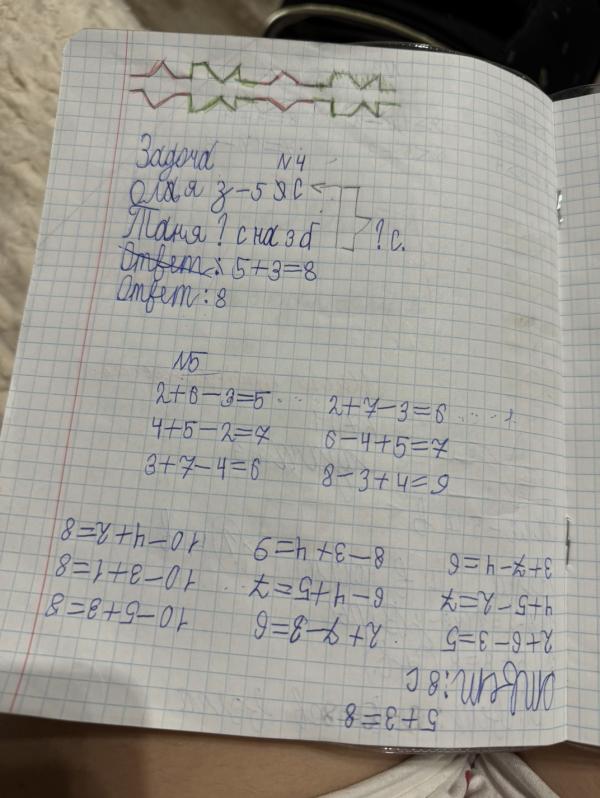 Задача №4
Оля я 3-5 ЯС
Таня ? с на 3 б ? с.
Ответ: 5+3=8
Ответ: 8
№5
2+6-3=5 2+7-3=6
4+5-2=7 6-4+5=7
3+7-4=6 8-3+4=9
5+3=8
Ответ: 8 с
2+6-3=5 2+7-3=6 10-5+3=8
4+5-2=7 6-4+5=7 10-3+1=8
3+7-4=6 8-3+4=9 10-4+2=8